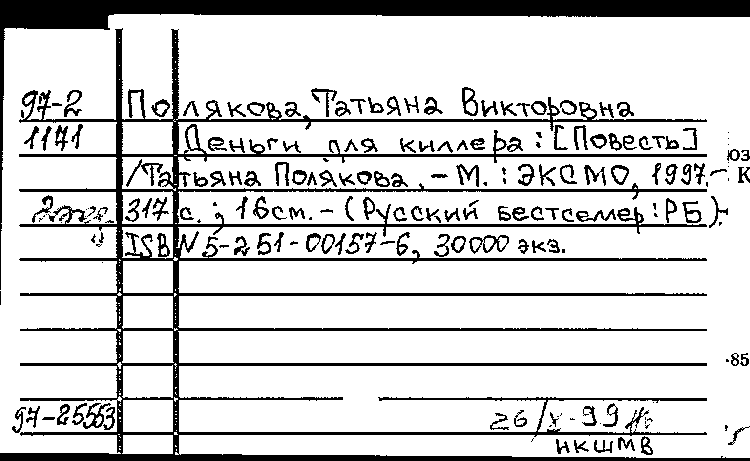 97-2 Полякова, Татьяна Викторовна
1171 Деньги для киллера : [Повесть]
/Татьяна Полякова. – М. : ЭКСМО, 1997. –
2экз. 317 с. ; 16см. – (Русский бестселлер : РБ). –
ISBN 5-251-00157-6, 30000 экз.
97-25553 26/X-99
НКШМВ